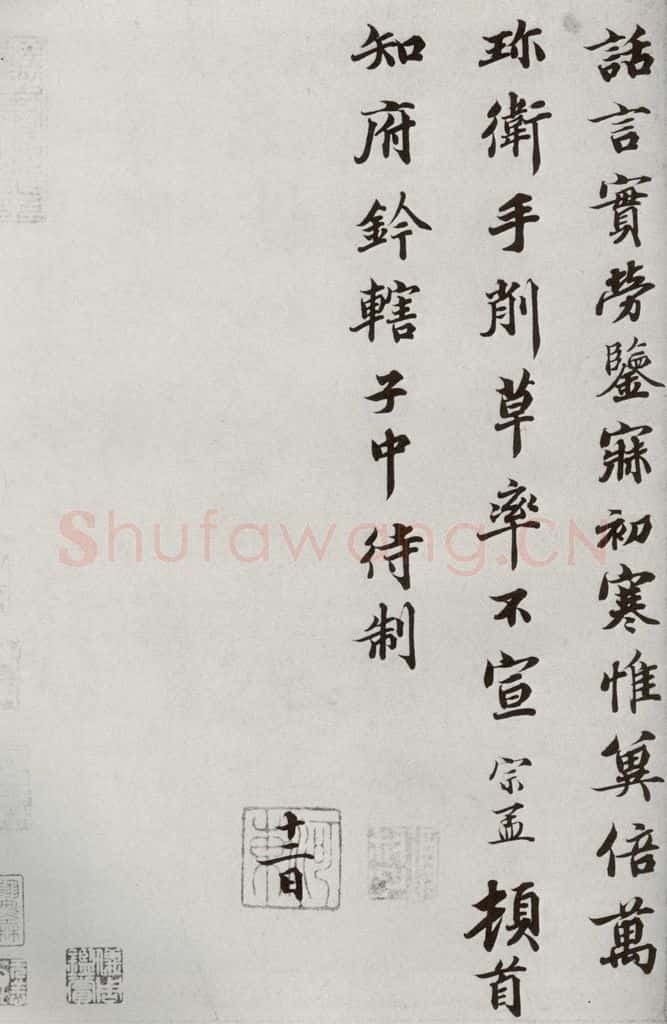 話言實勞鑒寐初寒惟兾倍萬
珎衛手削草率不宣 宗孟 頓首
知府鈐轄子中待制
十二日
河東
Shufawang.CN